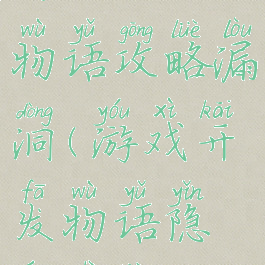 wù yǔ gōng lüè lòu
物语攻略漏
dòng yóu xì kāi
洞(游戏开
fā wù yǔ yǐn
发物语隐